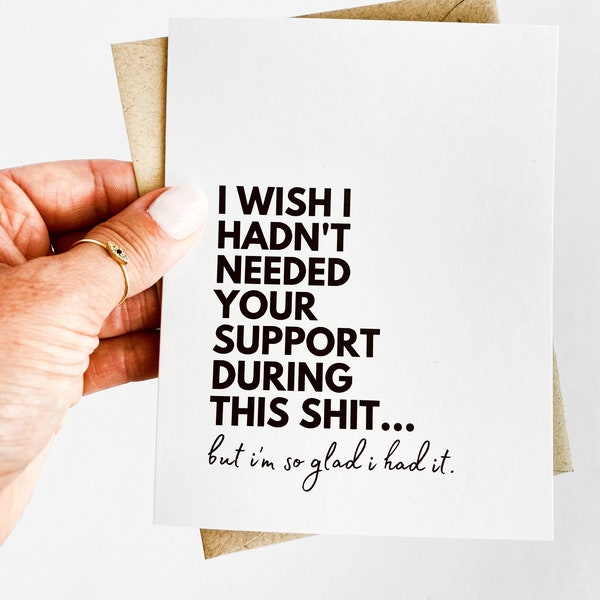 I WISH I
HADN'T
NEEDED
YOUR
SUPPORT
DURING
THIS SHIT...
but i'm so glad i had it.